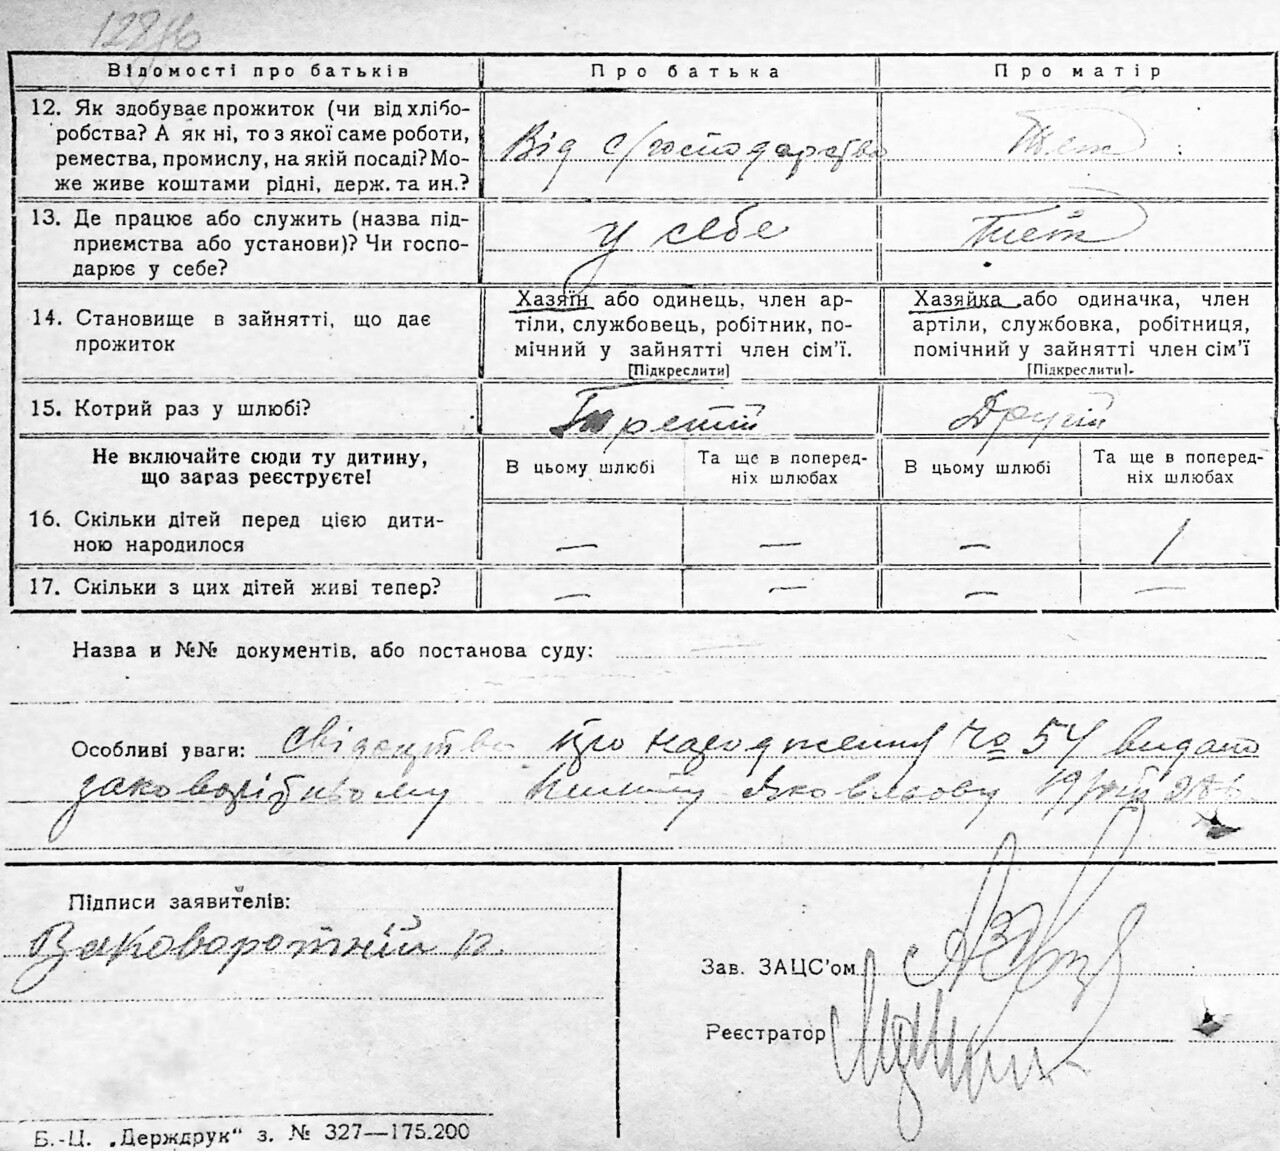 128/16
Відомості про батьків Про батька Про матір
12. Як здобуває прожиток (чи від хлібо-
робства? А як ні, то з якої саме роботи,
ремества, промислу, на якій посаді? Мо-
же живе коштами рідні, держ. та ин.?
Від с/господарство Теж
13. Де працює або служить (назва під-
приємства або установи)? Чи госпо-
дарює у себе?
у себе Теж
14. Становище в зайнятті, що дає
прожиток
Хазяїн або одинець, член ар-
тіли, службовець, робітник, по-
мічний у зайнятті член сім’ї.
[Підкреслити]
Хазяйка або одиначка, член
артіли, службовка, робітниця,
помічний у зайнятті член сім’ї
[Підкреслити].
15. Котрий раз у шлюбі? Третій Другий
Не включайте сюди ту дитину,
що зараз реєструєте!
В цьому шлюбі Та ще в поперед-
ніх шлюбах
В цьому шлюбі Та ще в поперед-
ніх шлюбах
16. Скільки дітей перед цією дити-
ною народилося — — — 1
17. Скільки з цих дітей живі тепер? — — — —
Назва и №№ документів, або постанова суду:
Особливі уваги: свідоцтво про народження № 54 видано
Яковловоу 19
Підписи заявителів:
Заковоротній
Зав. ЗАЦС’ом
Реєстратор
Б.-Ц. „Держдрук“ з. № 327—175.200